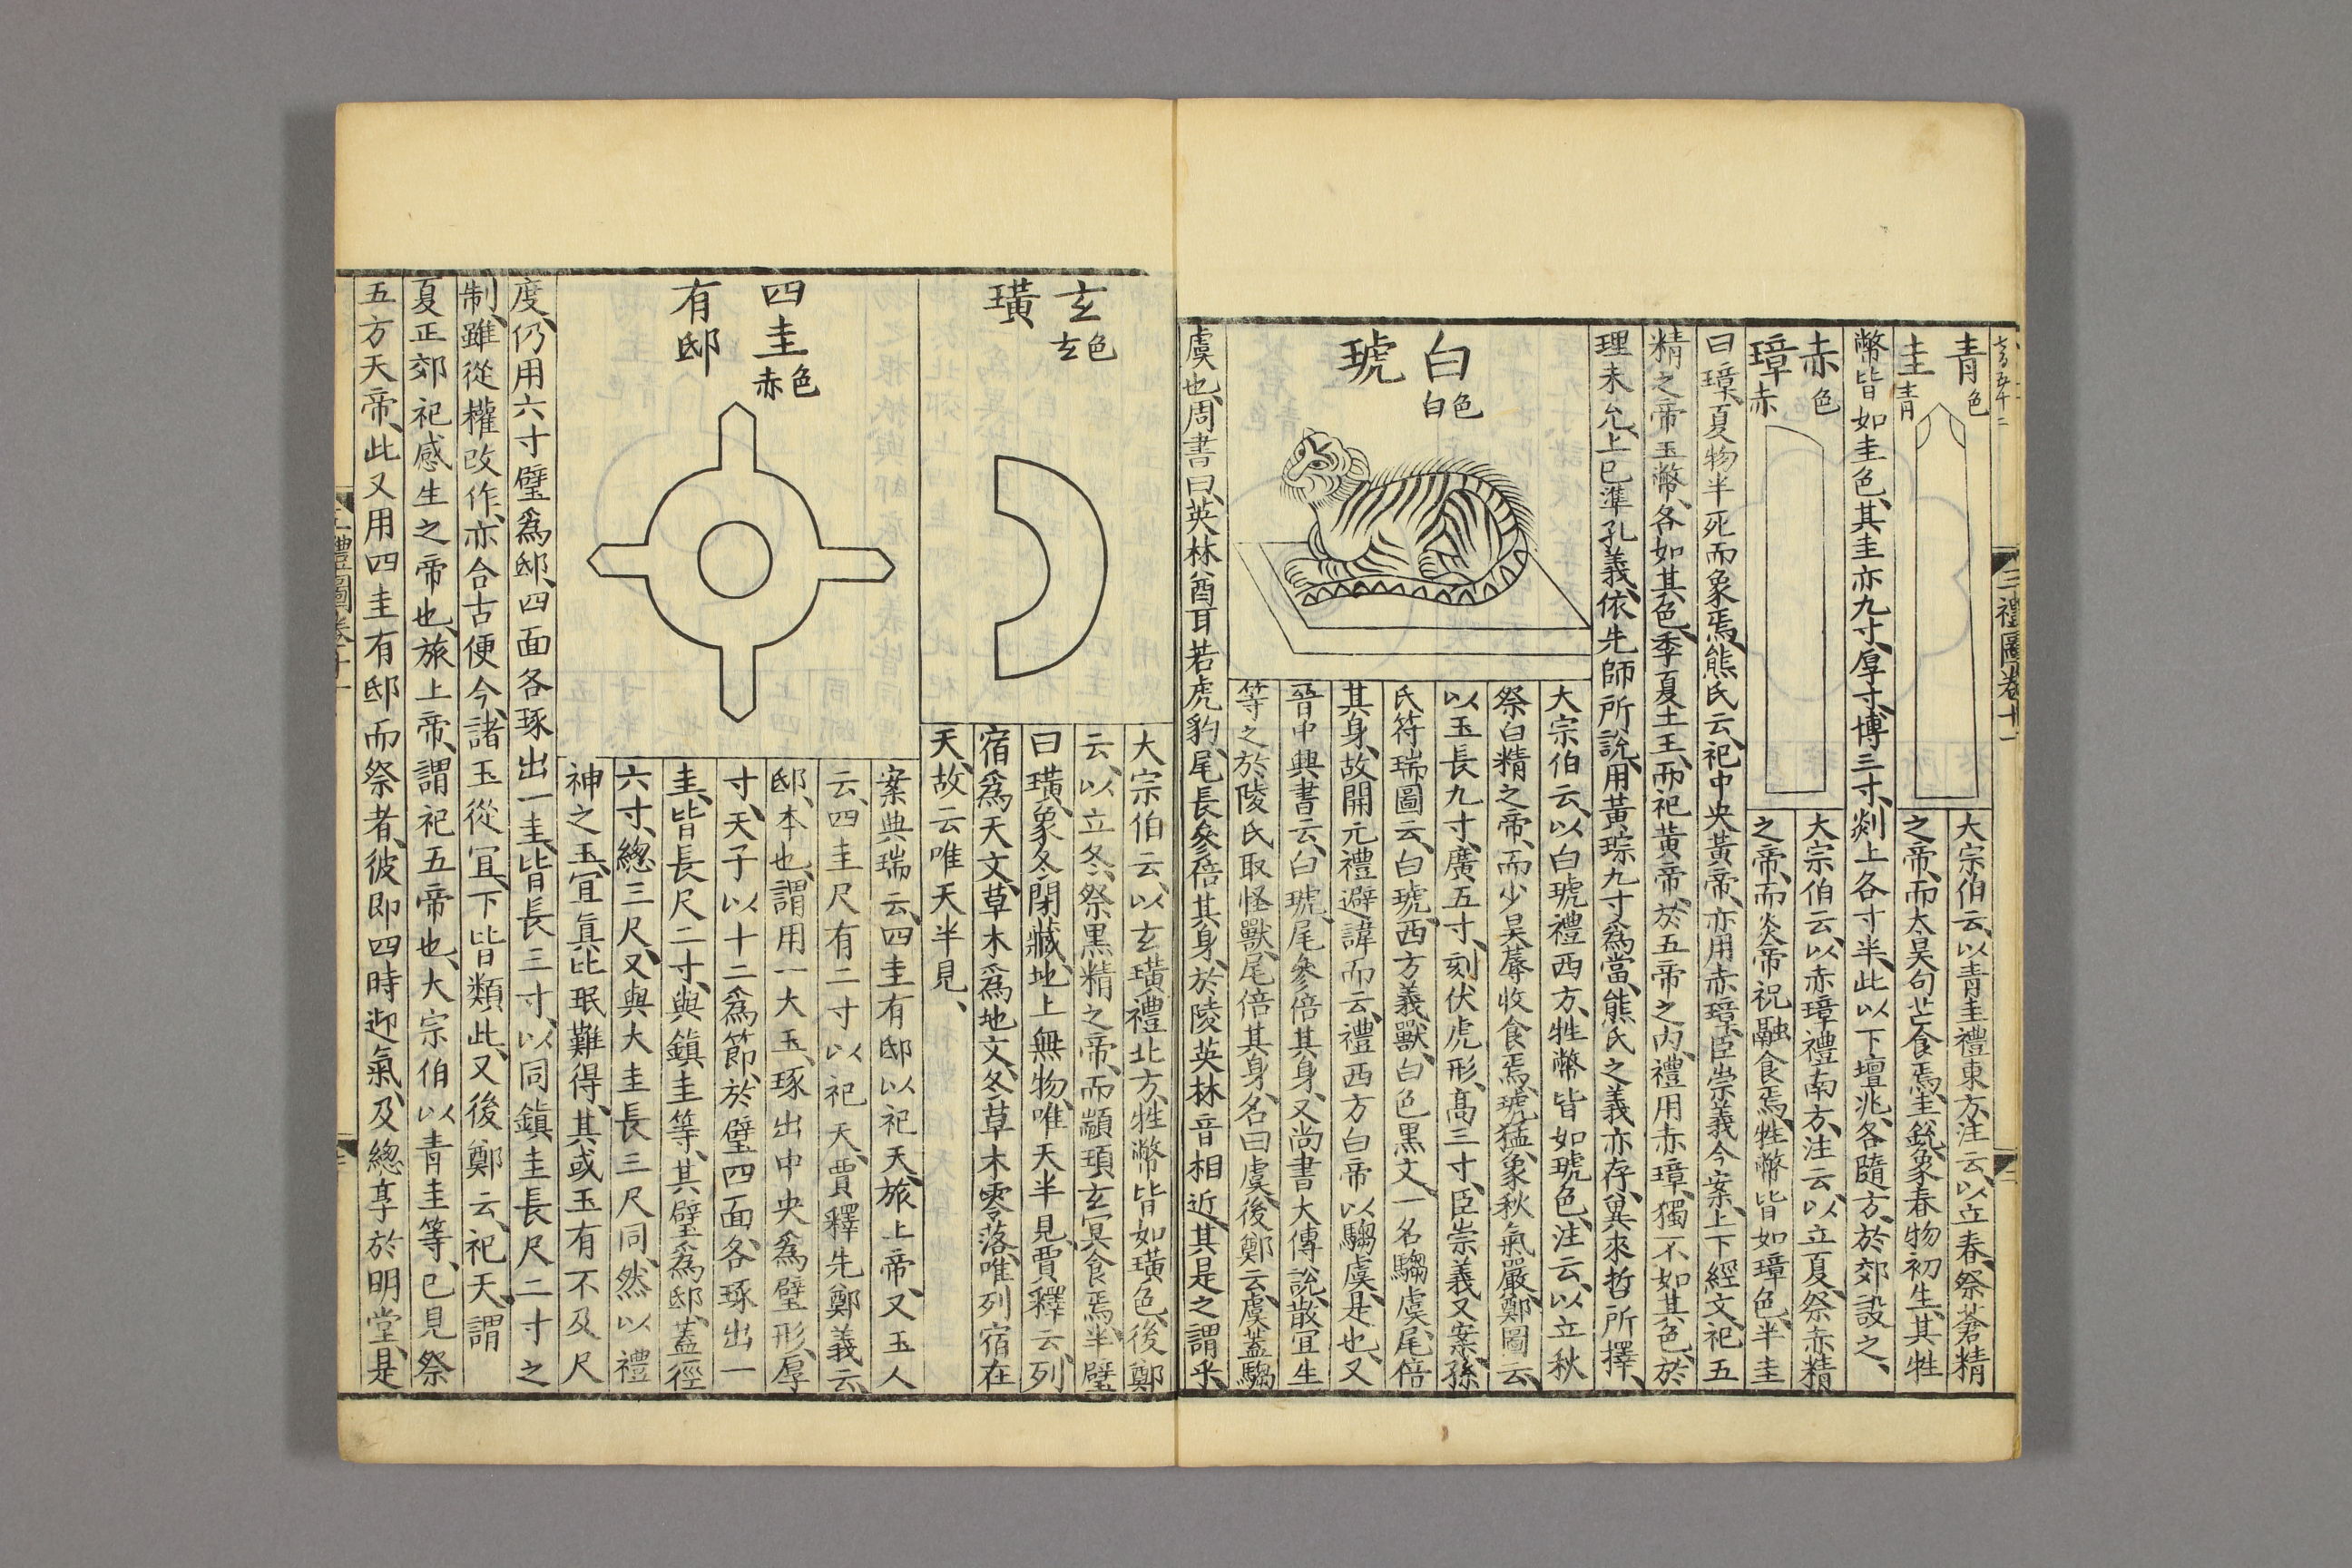 三禮圖卷十一
二
青色
圭青
大宗伯云以青圭禮東方注云以立春祭蒼精
之帝而太昊句芒食焉圭銳象春物初生其牲
幣皆如圭色其圭亦九寸厚寸博三寸剡上各寸半此以下壇兆各隨方於郊設之
赤色
璋赤
大宗伯云以赤璋禮南方注云以立夏祭赤精
之帝而炎帝祝融食焉牲幣皆如璋色半圭
曰璋夏物半死而象焉熊氏云祀中央黃帝亦用赤璋臣崇義今案上下經文祀五
精之帝玉幣各如其色季夏土王而祀黃帝於五帝之內禮用赤璋獨不如其色於
理未允上已準孔義依先師所說用黃琮九寸爲當熊氏之義亦存冀來哲所擇
白色白
琥
大宗伯云以白琥禮西方牲幣皆如琥色注云以立秋
祭白精之帝而少昊蓐收食焉琥猛象秋氣嚴鄭圖云
以玉長九寸廣五寸刻伏虎形高三寸臣崇義又案孫
氏符瑞圖云白琥西方義獸白色黑文一名騶虞尾倍
其身故開元禮避諱而云禮西方白帝以騶虞是也又
晉中興書云白琥尾參倍其身又尚書大傳說散宜生
等之於陵氏取怪獸尾倍其身名曰虞後鄭云虞蓋騶
虞也周書曰英林酋耳若虎豹尾長參倍其身於陵英林音相近其是之謂乎
玄色玄
璜
大宗伯云以玄璜禮北方牲幣皆如璜色後鄭
云以立冬祭黑精之帝而顓頊玄冥食焉半璧
曰璜象冬閉藏地上無物唯天半見賈釋云列
宿爲天文草木爲地文冬草木零落唯列宿在
天故云唯天半見
四圭色赤
有邸
案典瑞云四圭有邸以祀天旅上帝又玉人
云四圭尺有二寸以祀天賈釋先鄭義云
邸本也謂用一大玉琢出中央爲璧形厚
寸天子以十二爲節於璧四面各琢出一
圭皆長尺二寸與鎮圭等其璧爲邸蓋徑
六寸總三尺又與大圭長三尺同然以禮
神之玉宜眞比珉難得其或玉有不及尺
度仍用六寸璧爲邸四面各琢出一圭皆長三寸以同鎮圭長尺二寸之
制雖從權改作亦合古便今諸玉從宜下皆類此又後鄭云祀天謂
夏正郊祀感生之帝也旅上帝謂祀五帝也大宗伯以青圭等已見祭
五方天帝此又用四圭有邸而祭者彼即四時迎氣及總享於明堂是
三禮圖卷十一